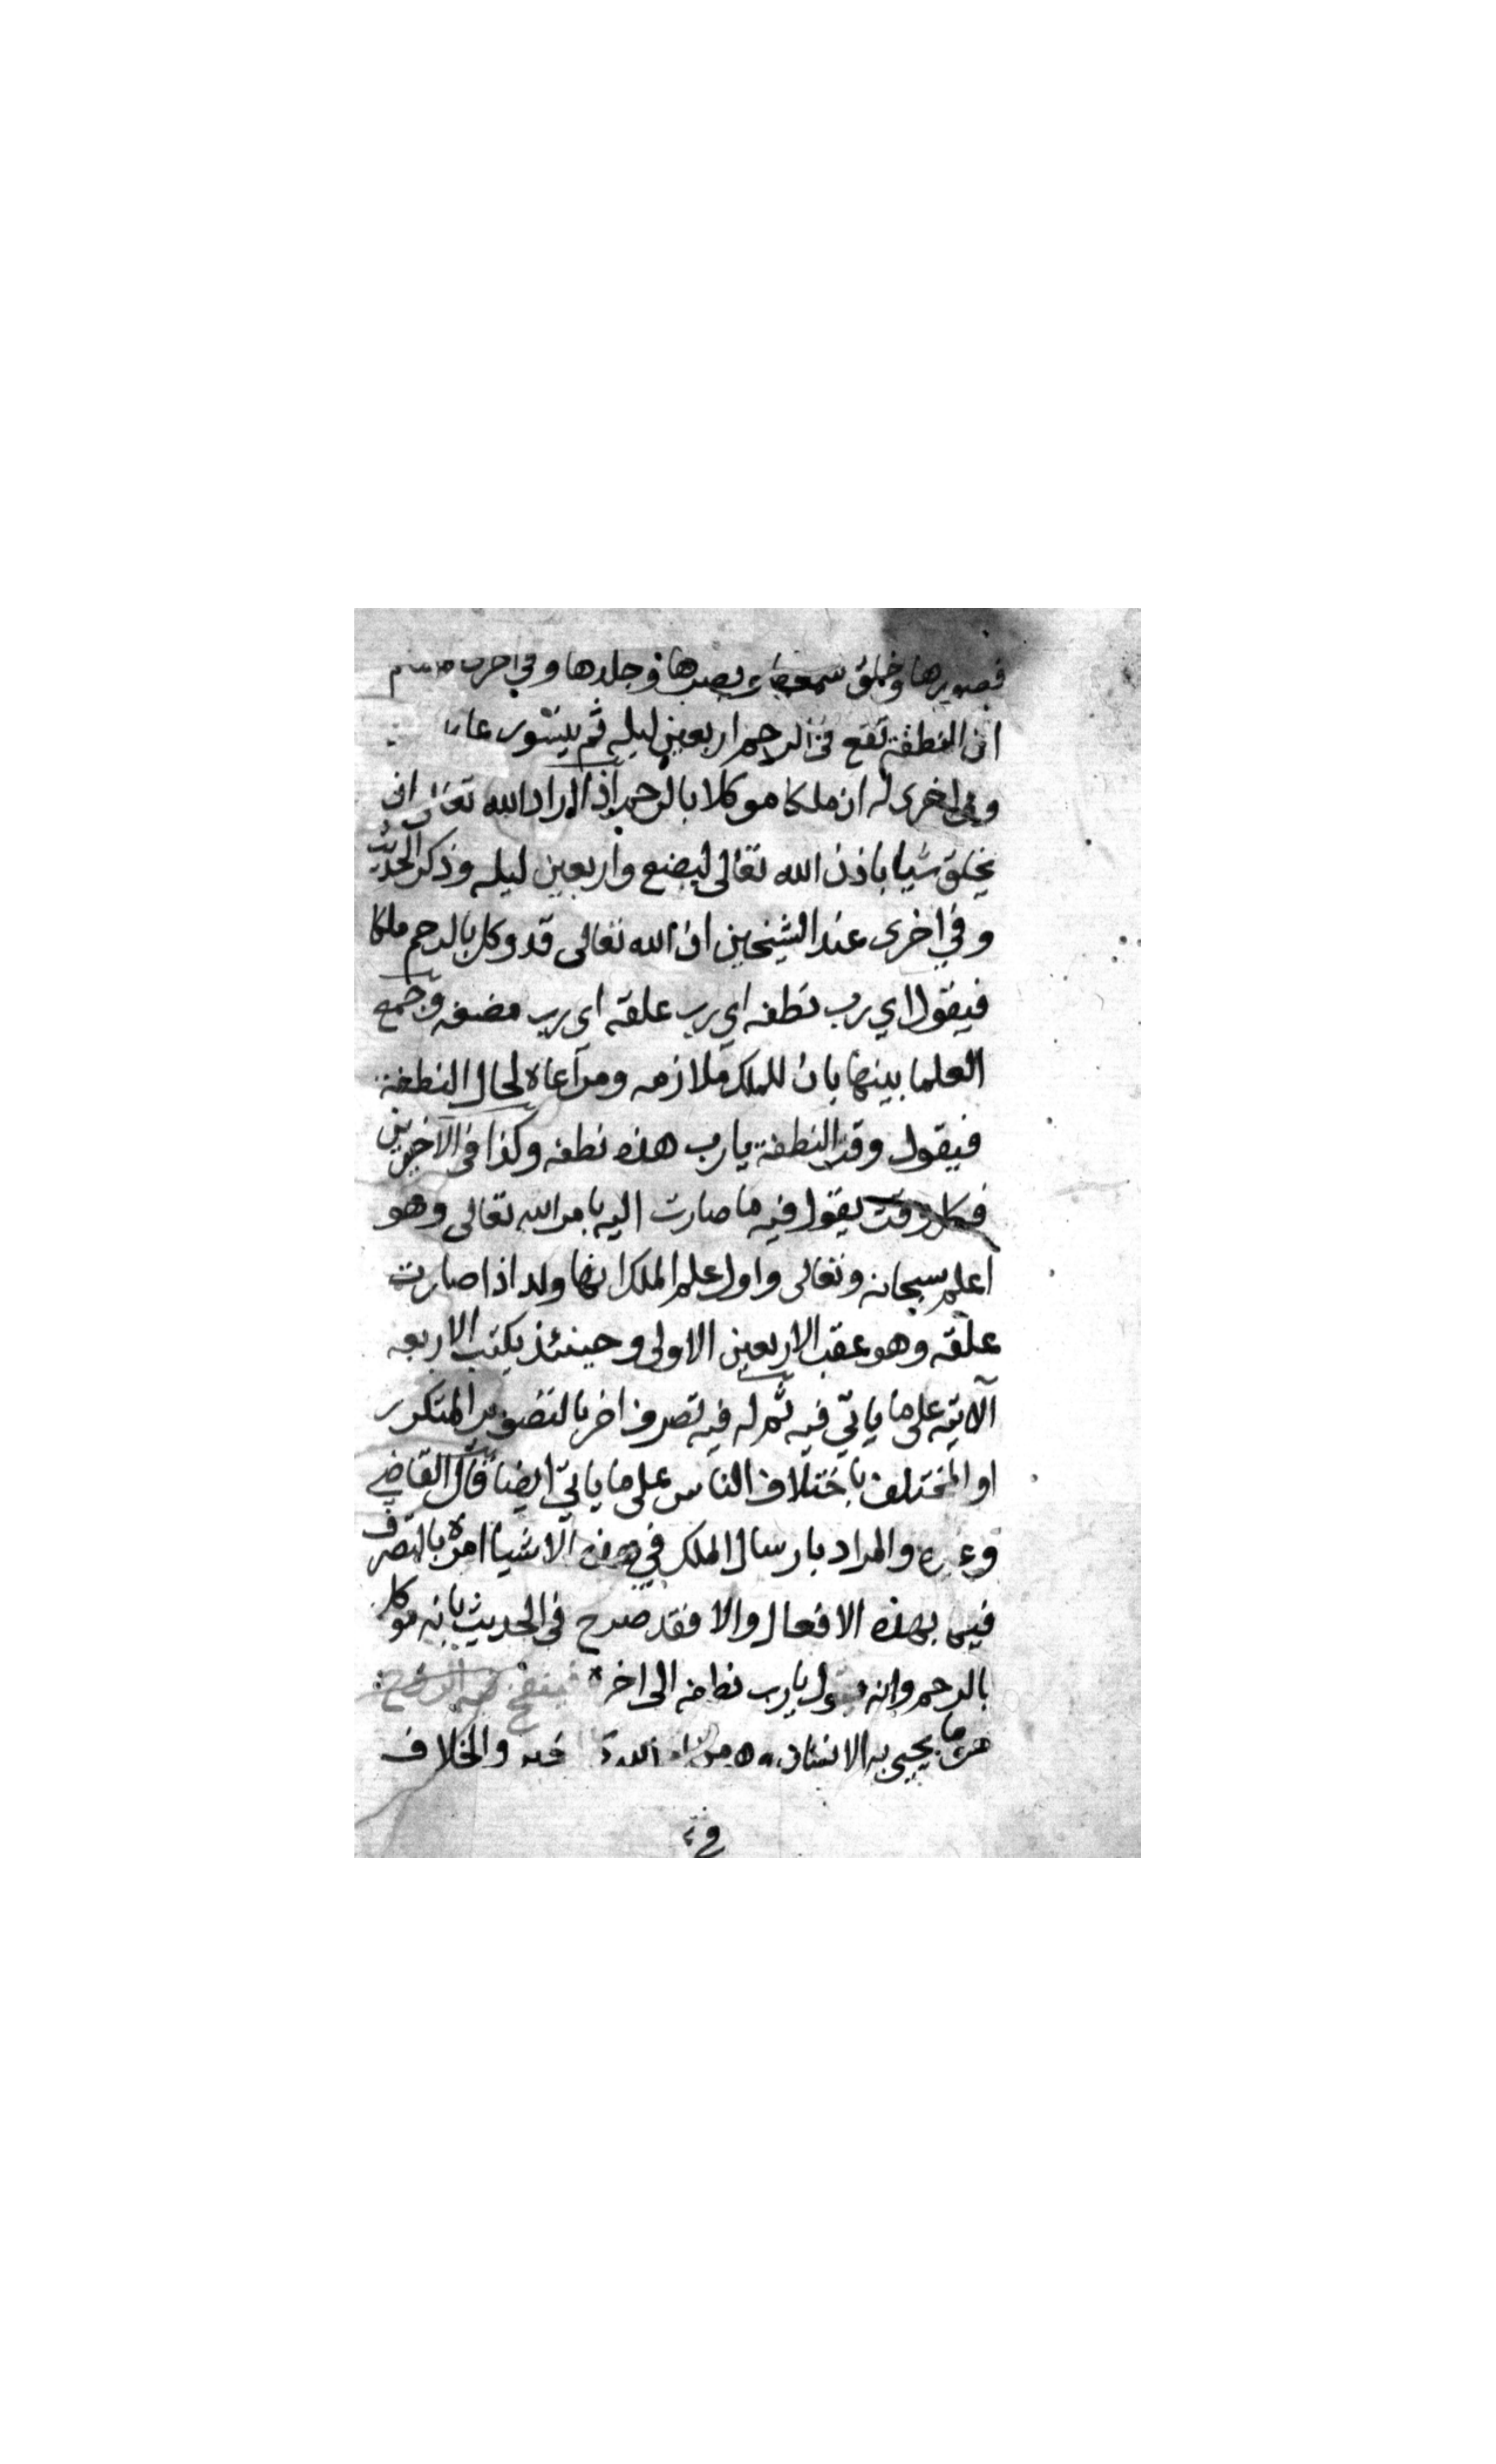 فصورها وخلق سمعها وبصرها وجلدها وفي اخرى
ان النطفة تقع في الرحم اربعين ليله ثم يتسور
وفي اخرى له ان ملكا موكلا بالرحم اذا اراد الله تعالى ان
يخلق شيا باذن الله تعالى لبضع واربعين ليله وذكر الحديث
وفي اخرى عند الشيخين ان الله تعالى قد وكل بالرحم ملكا
فيقول اي رب نطفه اي رب علقة اي رب مضغه وجمع
العلما بينها بان للملك ملازمه ومراعاه لحال النطفة
فيقول وقت النطفة يارب هذه نطفه وكذا في الاخرين
فكل وقت يقول فيه ما صارت اليه بامر الله تعالى وهو
اعلم سبحانه وتعالى واول علم الملك انها ولد اذا صارت
علقة وهو عقب الاربعين الاولى وحينئذ يكتب الاربعه
الآتيه على ما ياتي فيه ثم له فيه تصرف اخر بالتصوير المتكرر
او المختلف باختلاف الناس على ما ياتي ايضا قال القاضي
وغيره والمراد بارسال الملك في هذه الاشيا امره بالتصرف
فيها بهذه الافعال والا فقد صرح في الحديث بانه موكل
بالرحم وانه يقول يارب نطفه الى اخره فينفخ فيه الروح
هي ما يحيى به الانسان وهو من امر الله والخلاف
في